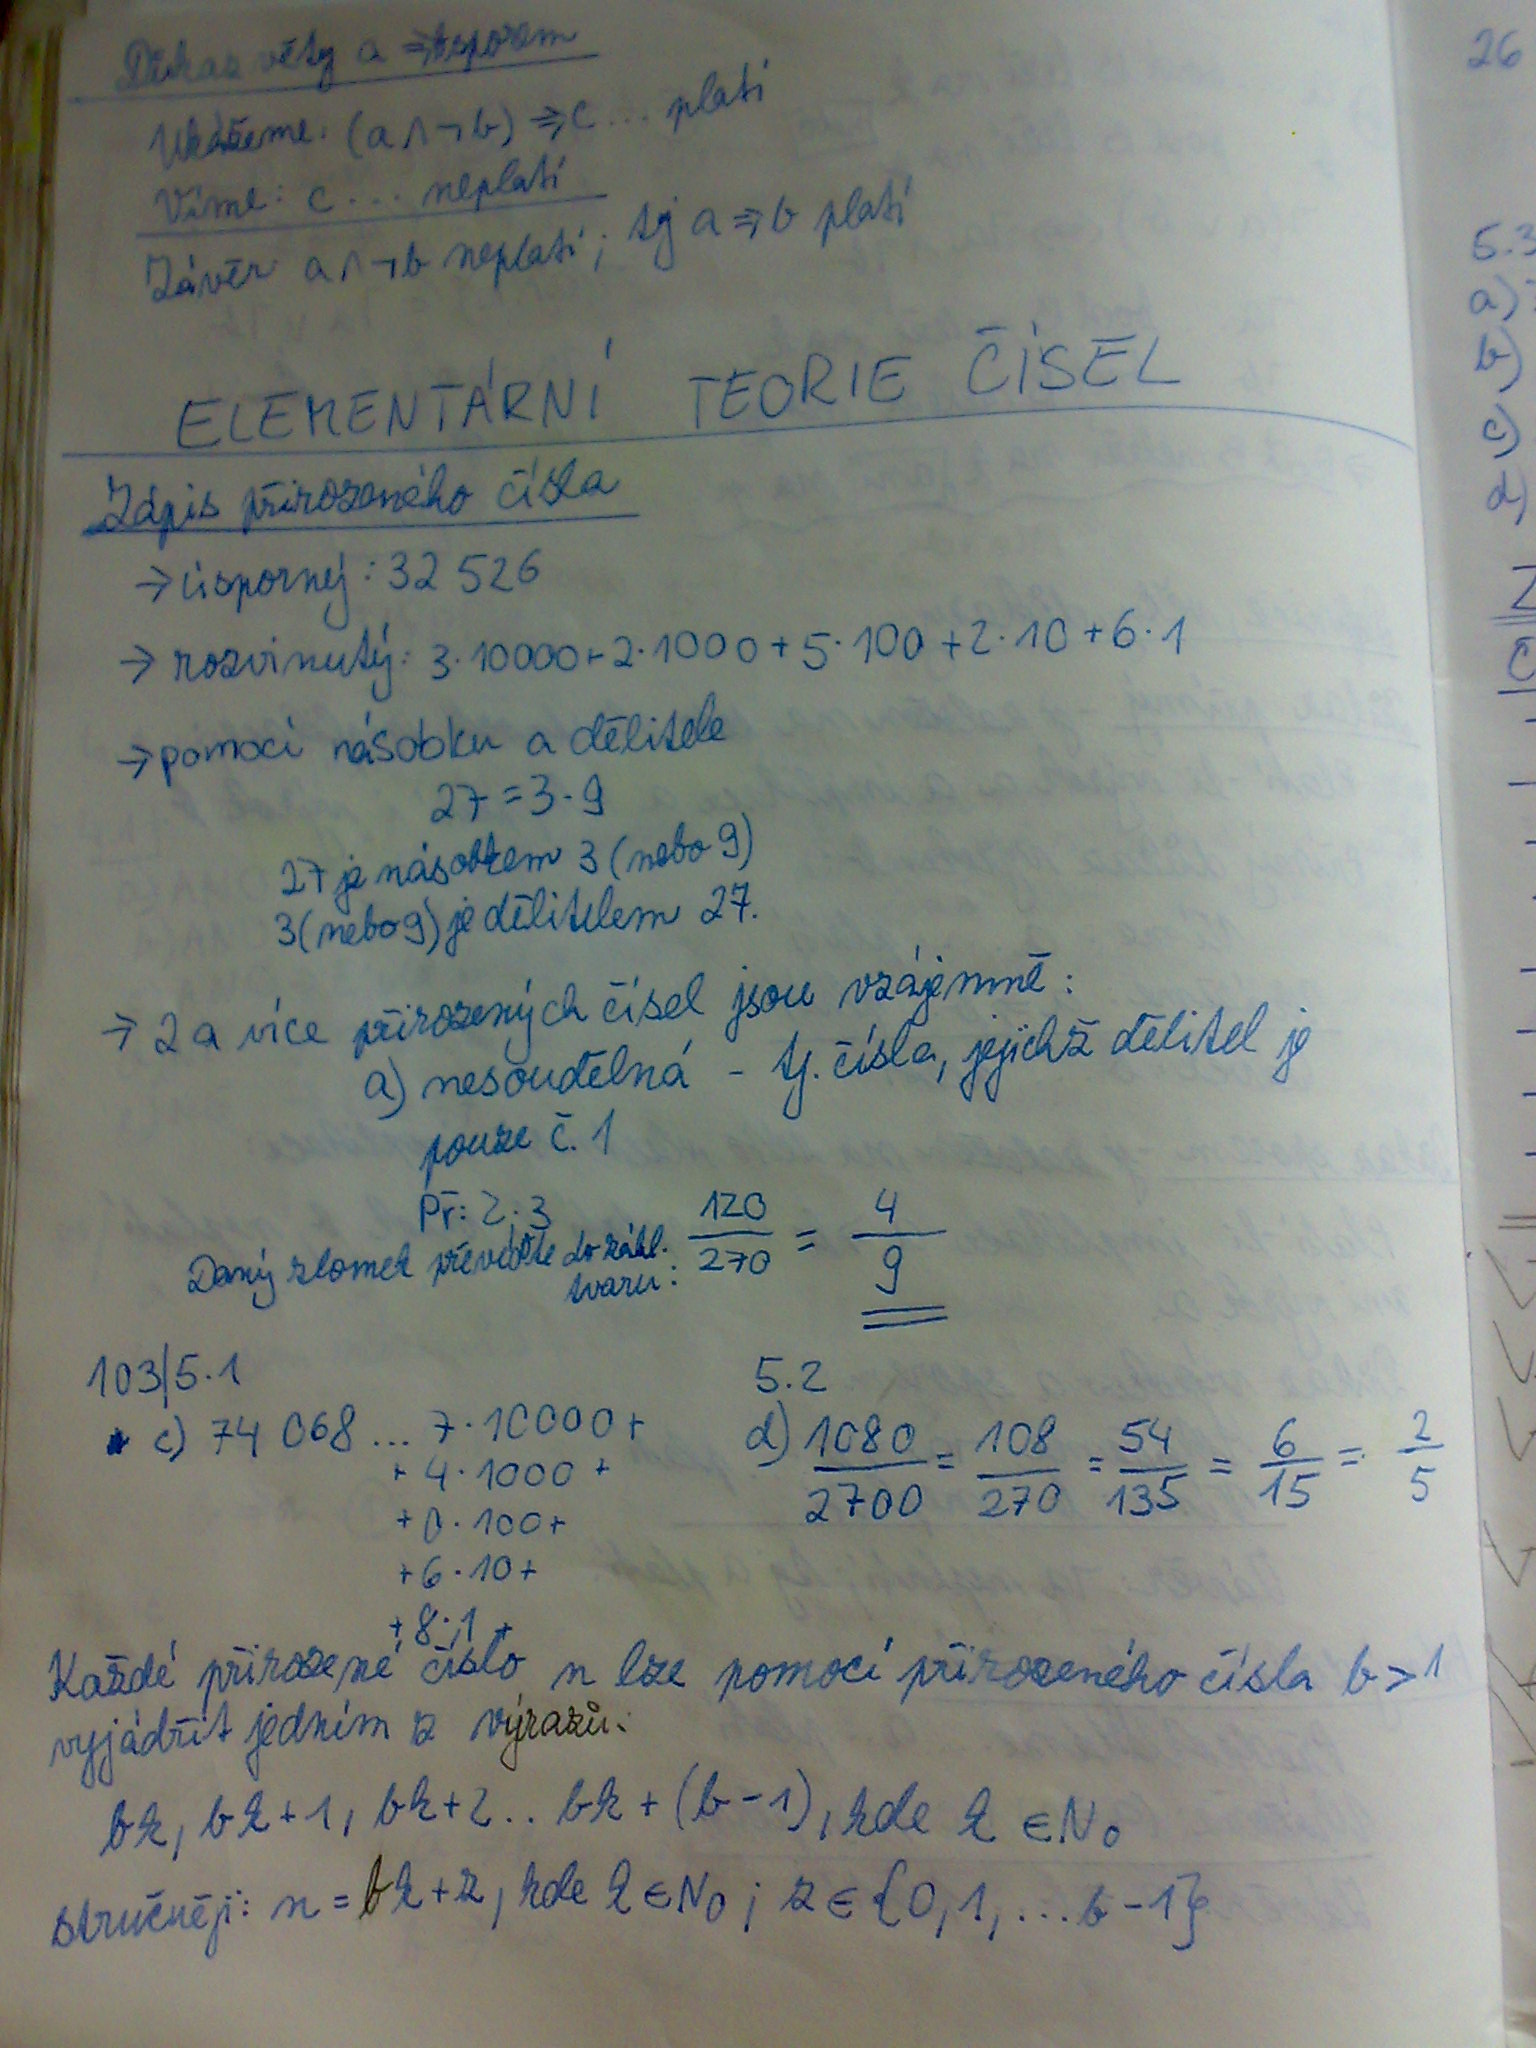 Důkaz věty a ⇒ b sporem
Ukážeme: (a ∧ ¬b) ⇒ c ... platí
Víme: c ... neplatí
Závěr a ∧ ¬b neplatí; tj a ⇒ b platí
ELEMENTÁRNÍ TEORIE ČÍSEL
Zápis přirozeného čísla
→ úsporný: 32 526
→ rozvinutý: 3·10000+2·1000+5·100+2·10+6·1
→ pomocí násobku a dělitele
27 = 3·9
27 je násobkem 3 (nebo 9)
3 (nebo 9) je dělitelem 27.
→ 2 a více přirozených čísel jsou vzájemně:
a) nesoudělná - tj. čísla, jejichž dělitel je
pouze č. 1
Př: 2; 3
Daný zlomek převeďte do zákl. tvaru: 120/270 = 4/9
103/5.1
c) 74 068 ... 7·10000+
+ 4·1000 +
+ 0·100+
+ 6·10+
+ 8·1 +
5.2
d) 1080/2700 = 108/270 = 54/135 = 6/15 = 2/5
Každé přirozené číslo n lze pomocí přirozeného čísla b > 1
vyjádřit jedním z výrazů:
bk, bk+1, bk+2.. bk+(b-1), kde k ∈ N₀
stručněji: n = bk+z, kde k ∈ N₀; z ∈ {0, 1, ... b-1}
26
5.3
a)
b)
c)
d)